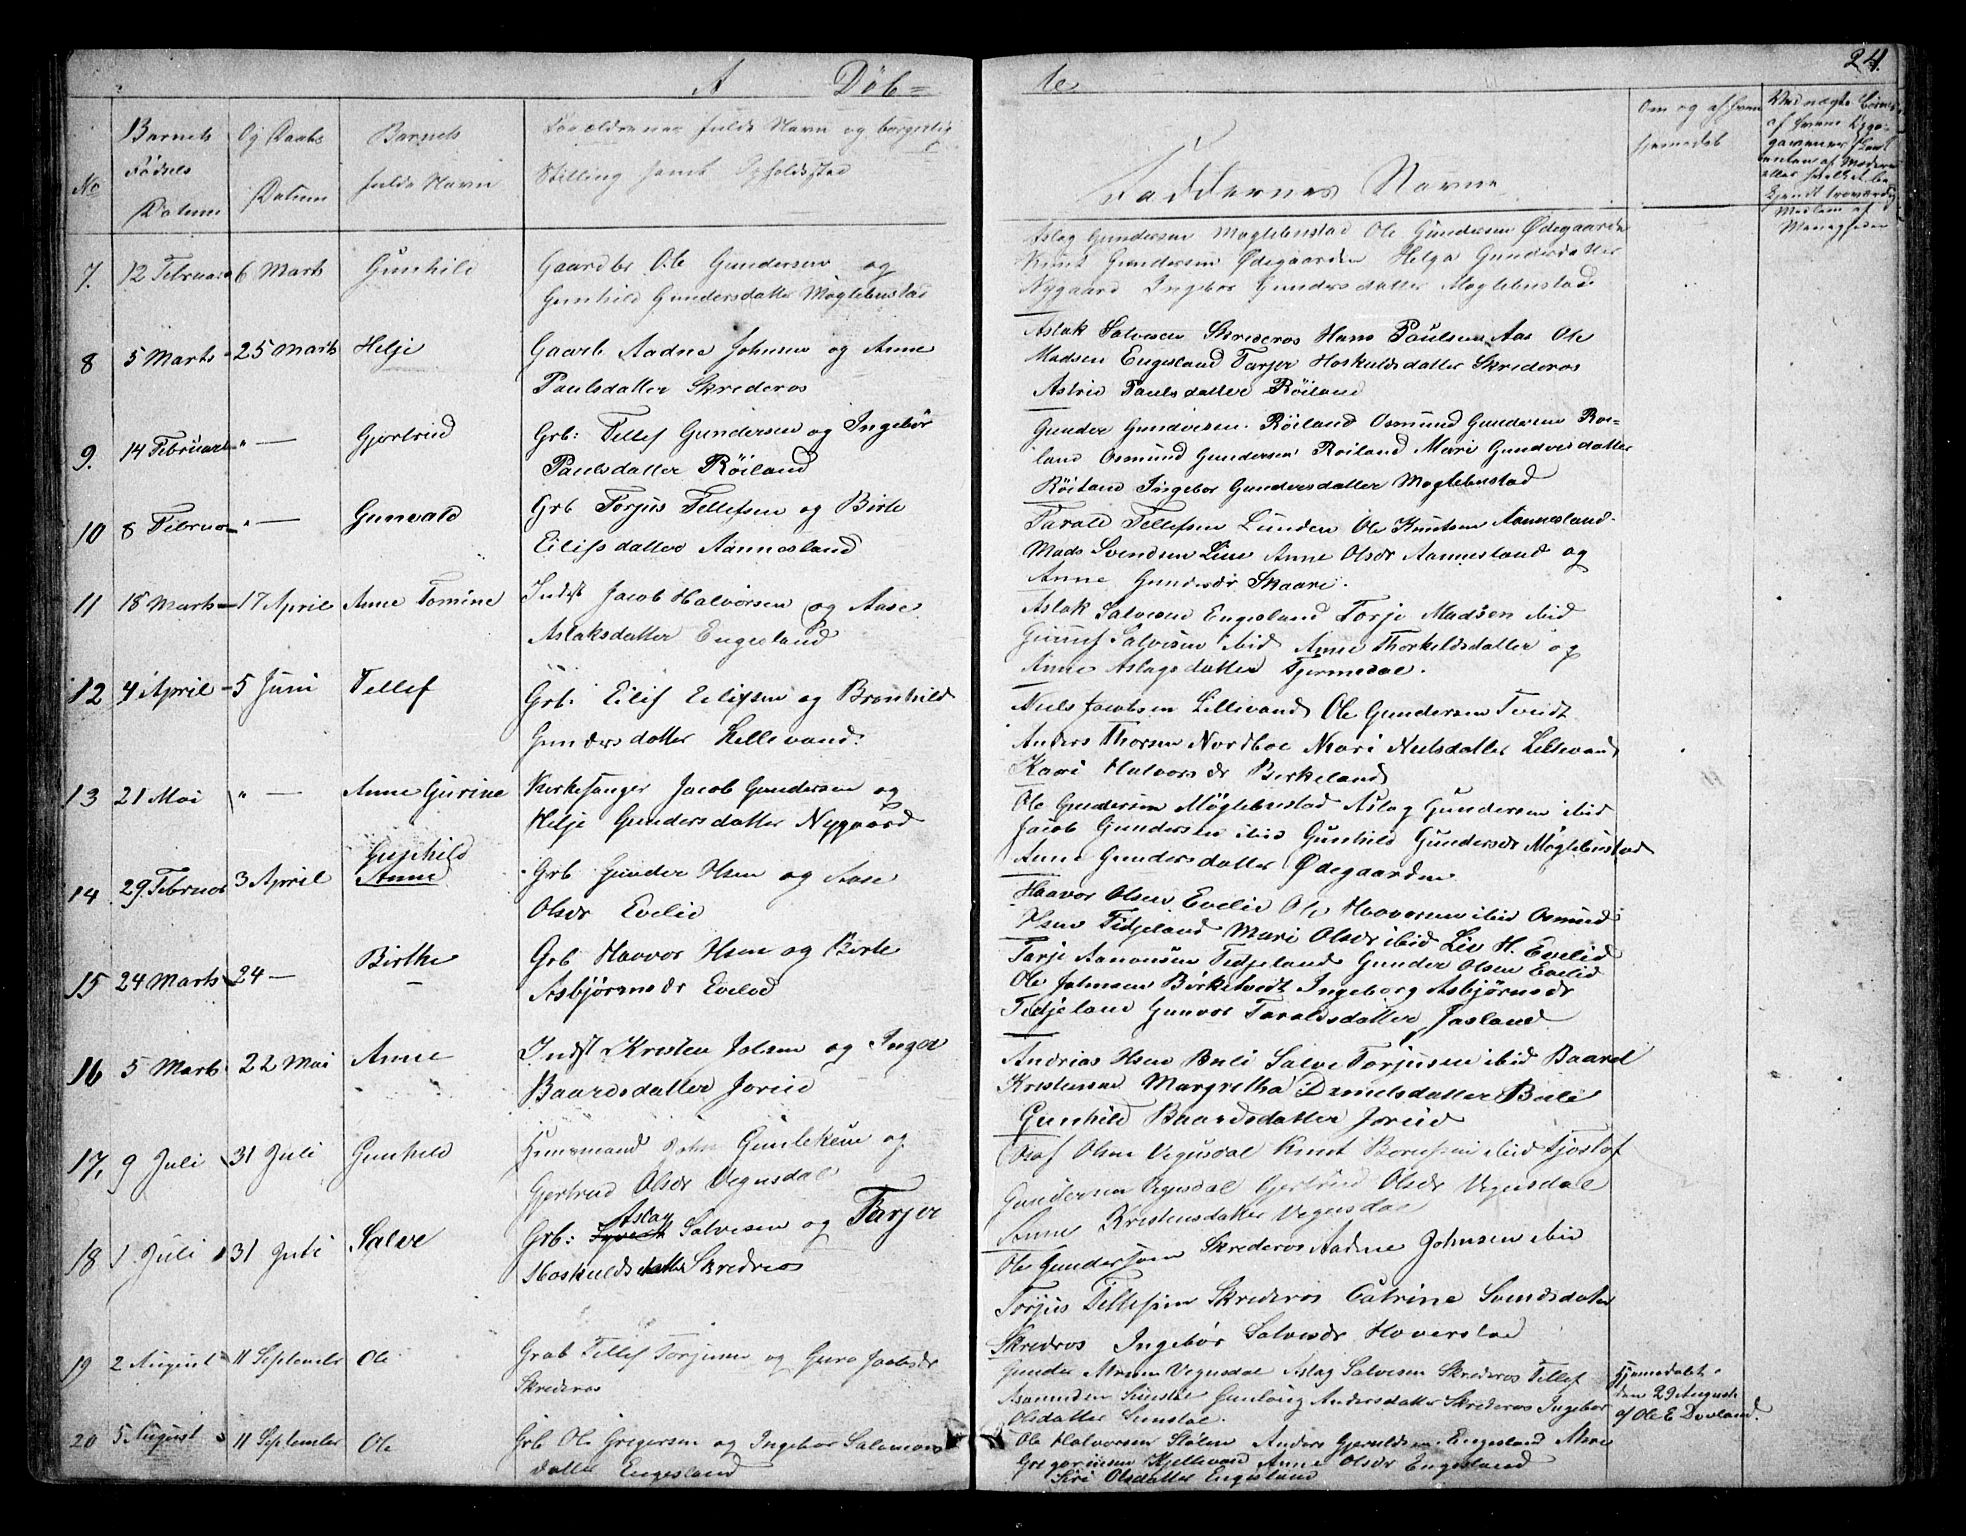 A Døb=
te
24.
No
Barnets Fødsels Datum
Og Daabs Datum
Barnets fulde Navn
Forældrenes fulde Navn og borgerlig Stilling samt Opholdsted
Faddernes Navne
Om og af hvem hjemedøbt
7. 12 Februar 6 Marts Gunhild Gaardbr Ole Gundersen og
Gunhild Gundersdatter Møglebustad
Aslag Gundersen Møglebustad Ole Gundersen Ødegaarden
Knut Gundersen Ødegaarden Helga Gundersdatter
Nygaard Ingebor Gundersdatter Møglebustad
8 5 Marts - 25 Marts Helje Gaarb Aadne Johnsen og Anne
Paulsdatter Skrederos
Aslak Salvesen Skrederos Hans Paulsen Aas Ole
Madsen Engesland Tarjer Hoskuldsdatter Skrederos
Astrid Paulsdatter Röiland
9. 14 Februar - " — Gjertrud Grb: Tellef Gundersen og Ingebör
Paulsdatter Röiland
Gunder Gundersen Röiland Osmund Gundersen Röi-
land Osmund Gundersen Röiland Mari Gundersdatter
Röiland Ingebor Gundersdatter Møglebustad
10 8 Februar - " — Gunvald Grb Torjus Tellefsen og Birte
Eilifsdatter Aannesland
Tarald Tellefsen Lunden Ole Knutsen Aannesland
Mads Svendsen Lien Anne Olsdr Aannesland og
Anne Gundersdr Skaare.
11 18 Marts - 17 April Anne Tomine Indst Jacob Halvorsen og Aase
Aslaksdatter Engesland
Aslak Salvesen Engesland Torje Madsen ibid
Salvesen ibid Anne Thorkeldsdatter og
Anne Aslagsdatter Tjermedal.
12 4 April - 5 Juni Tellef Grb: Eilif Eilifsen og Brønhild
Gundersdatter Lellevand.
Niels Jacobsen Lillevand Ole Gundersen Tveidt
Anders Thorsen Nordboe Mari Nielsdatter Lillevand
Kari Halvorsdr Birkeland
13 21 Mai " — Anne Gurine Kirkesanger Jacob Gundersen og
Helje Gundersdatter Nygaard
Ole Gundersen Møglebustad Aslag Gundersen ibid
Jacob Gundersen ibid Gunhild Gundersdr Møglebustad
Anne Gundersdatter Ødegaarden
14 29. Februar 3 April Gunhild Anne Grb Gunder Olsen og Aase
Olsdr Evelid
Haavor Olsen Evelid Ole Haavorsen ibid Osmund
Olsen Tidjeland Mari Olsdr ibid Liv H. Evelid
15 24 Marts 24 — Birthe Grb Haavor Olsen og Birte
Asbjörnsdr Evelid
Tarje Aanonsen Tidjeland Gunder Olsen Evelid
Ole Johnsen Birketvedt Ingeborg Asbjörnsdr
Tidjeland Gunvor Taraldsdatter Jasland
16 5 Marts 22 Mai Anne Indst Kristen Johsen og Inger
Baardsdatter Joreid
Andrias Olsen Buli Salve Torjusen ibid Baard
Kristensen Margretha Danielsdatter Buli
Gunhild Baardsdatter Joreid
17. 9 Juli 31 Juli Gunhild Huusmand John Gunleksen og
Gjertrud Olsdr Vegusdal
Olaf Olsen Vegusdal Knut ibid Tjøstof
Gundersen Vegusdal Gjertrud Olsdr Vegusdal
Anne Kristensdatter Vegusdal
18 1. Juli 31 Juli Salve Grb: Aslag Salvesen og Tarjer
Hoskuldsdatter Skrederos
Ole Gundersen Skrederos Aadne Johnsen ibid
Torjus Tellefsen Skrederos Catrine Svendsdater
Skrederos Ingebör Salvesdr Hoverstad
19 2 August 11 September Ole Grab Tellef Torjusen og Guro Jacobsdr
Skrederos
Gunder Vegusdal Aslag Salvesen Skrederos Tellef
Aamundsen Simstøl Gunlaug Andersdatter Skrederos Ingebor
Olsdatter Simstøl.
Hjemedøbt
den 29 August
af Ole E Dovland.
20 5. August 11 September Ole Grb Ole Gregersen og Ingebor Salamons
datter Engesland
Ole Halvorsen Stølen Anders Gjeruldsen Engesland
Gregoriusen Kjellevand Anne Olsdr Engesland
Siri Olsdatter Engesland